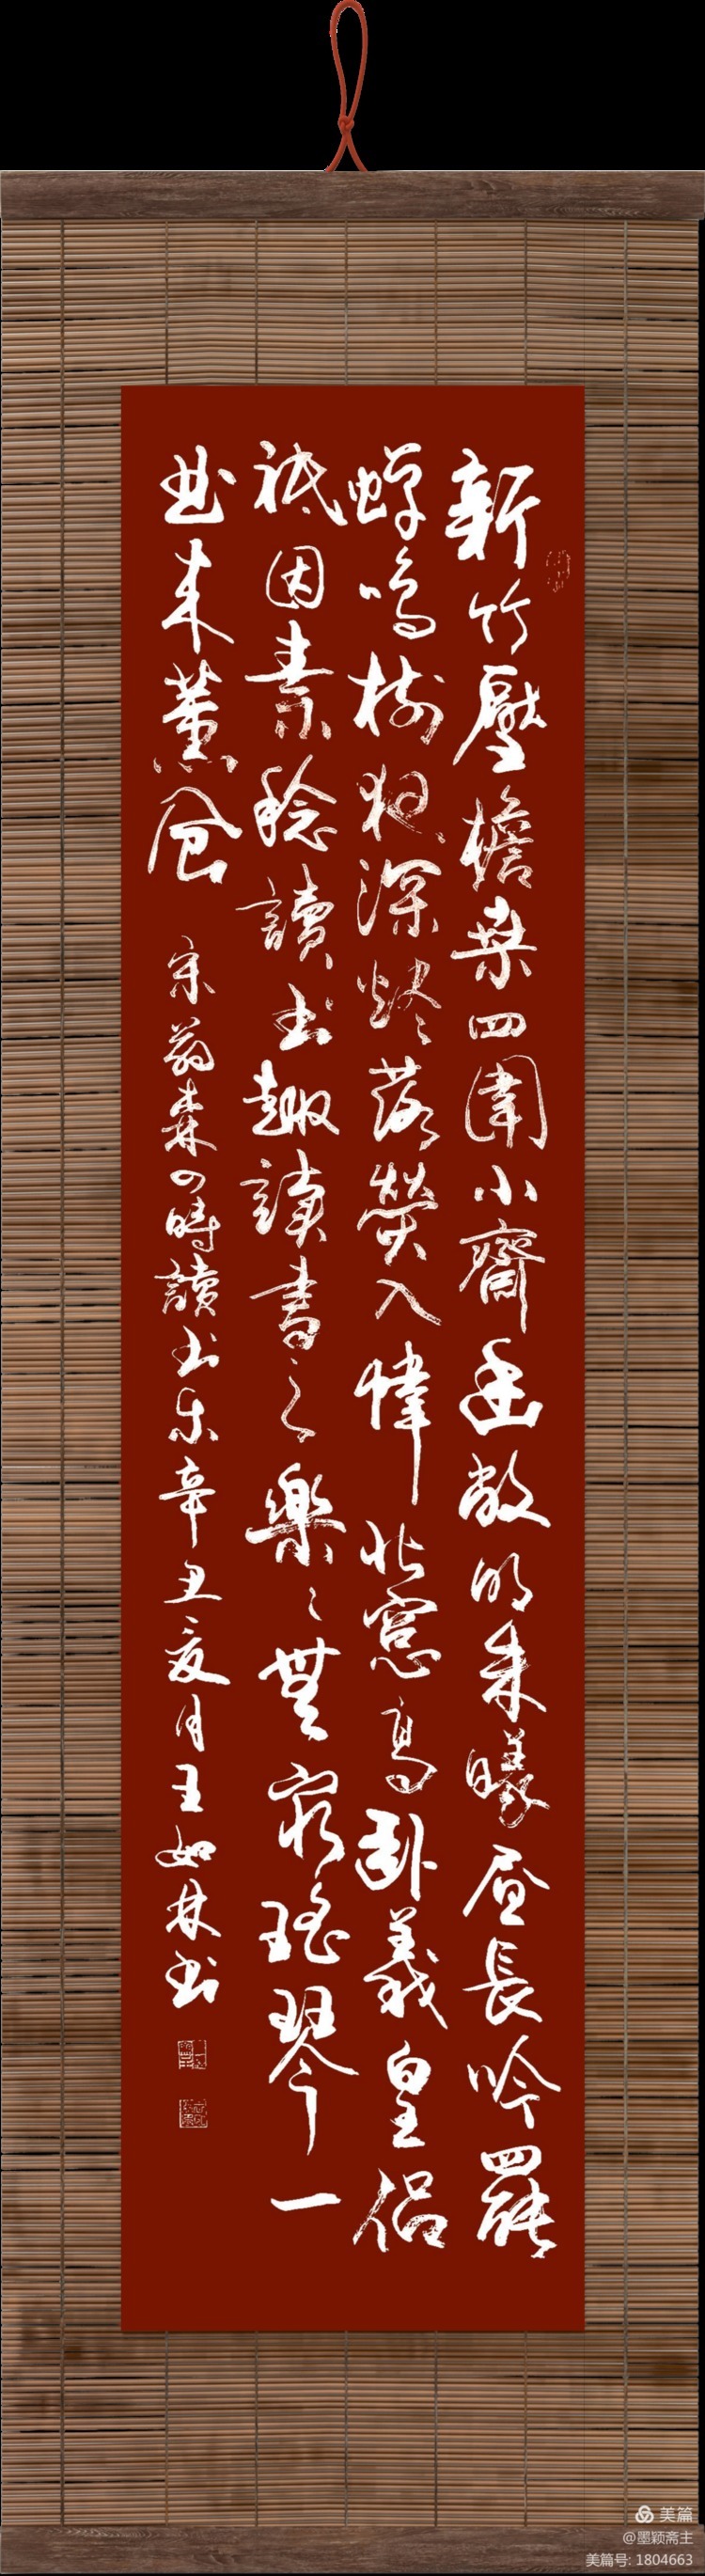 新竹壓檐桒四圍小齋幽敞明朱曦昼長吟罷
蟬鳴樹夜深烬落螢入幃北窓高卧羲皇侣
祗因素稔讀书趣讀書之樂〻無窮瑶琴一
曲来薰风
宋翁森四時讀书乐辛丑夏月王如林书
美篇
@墨颖斋主
美篇号: 1804663